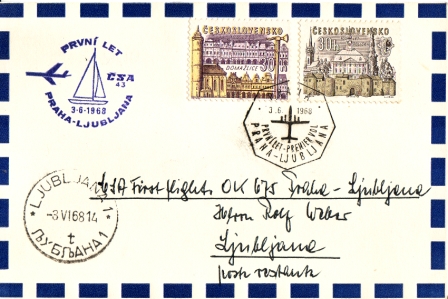 PRVNÍ LET
ČSA
43
3-6-1968
PRAHA-LJUBLJANA
ČESKOSLOVENSKO
DOMAŽLICE
ČESKOSLOVENSKO
3.6.1968
PRVNÍ LET-PREMIER VOL
PRAHA-LJUBLJANA
LJUBLJANA 1
-3 VI 68 14
t
ЉУБЉАНА 1
ČSA First flight OK 675 Praha - Ljubljana
Herrn Rolf Weber
Ljubljana
poste restante